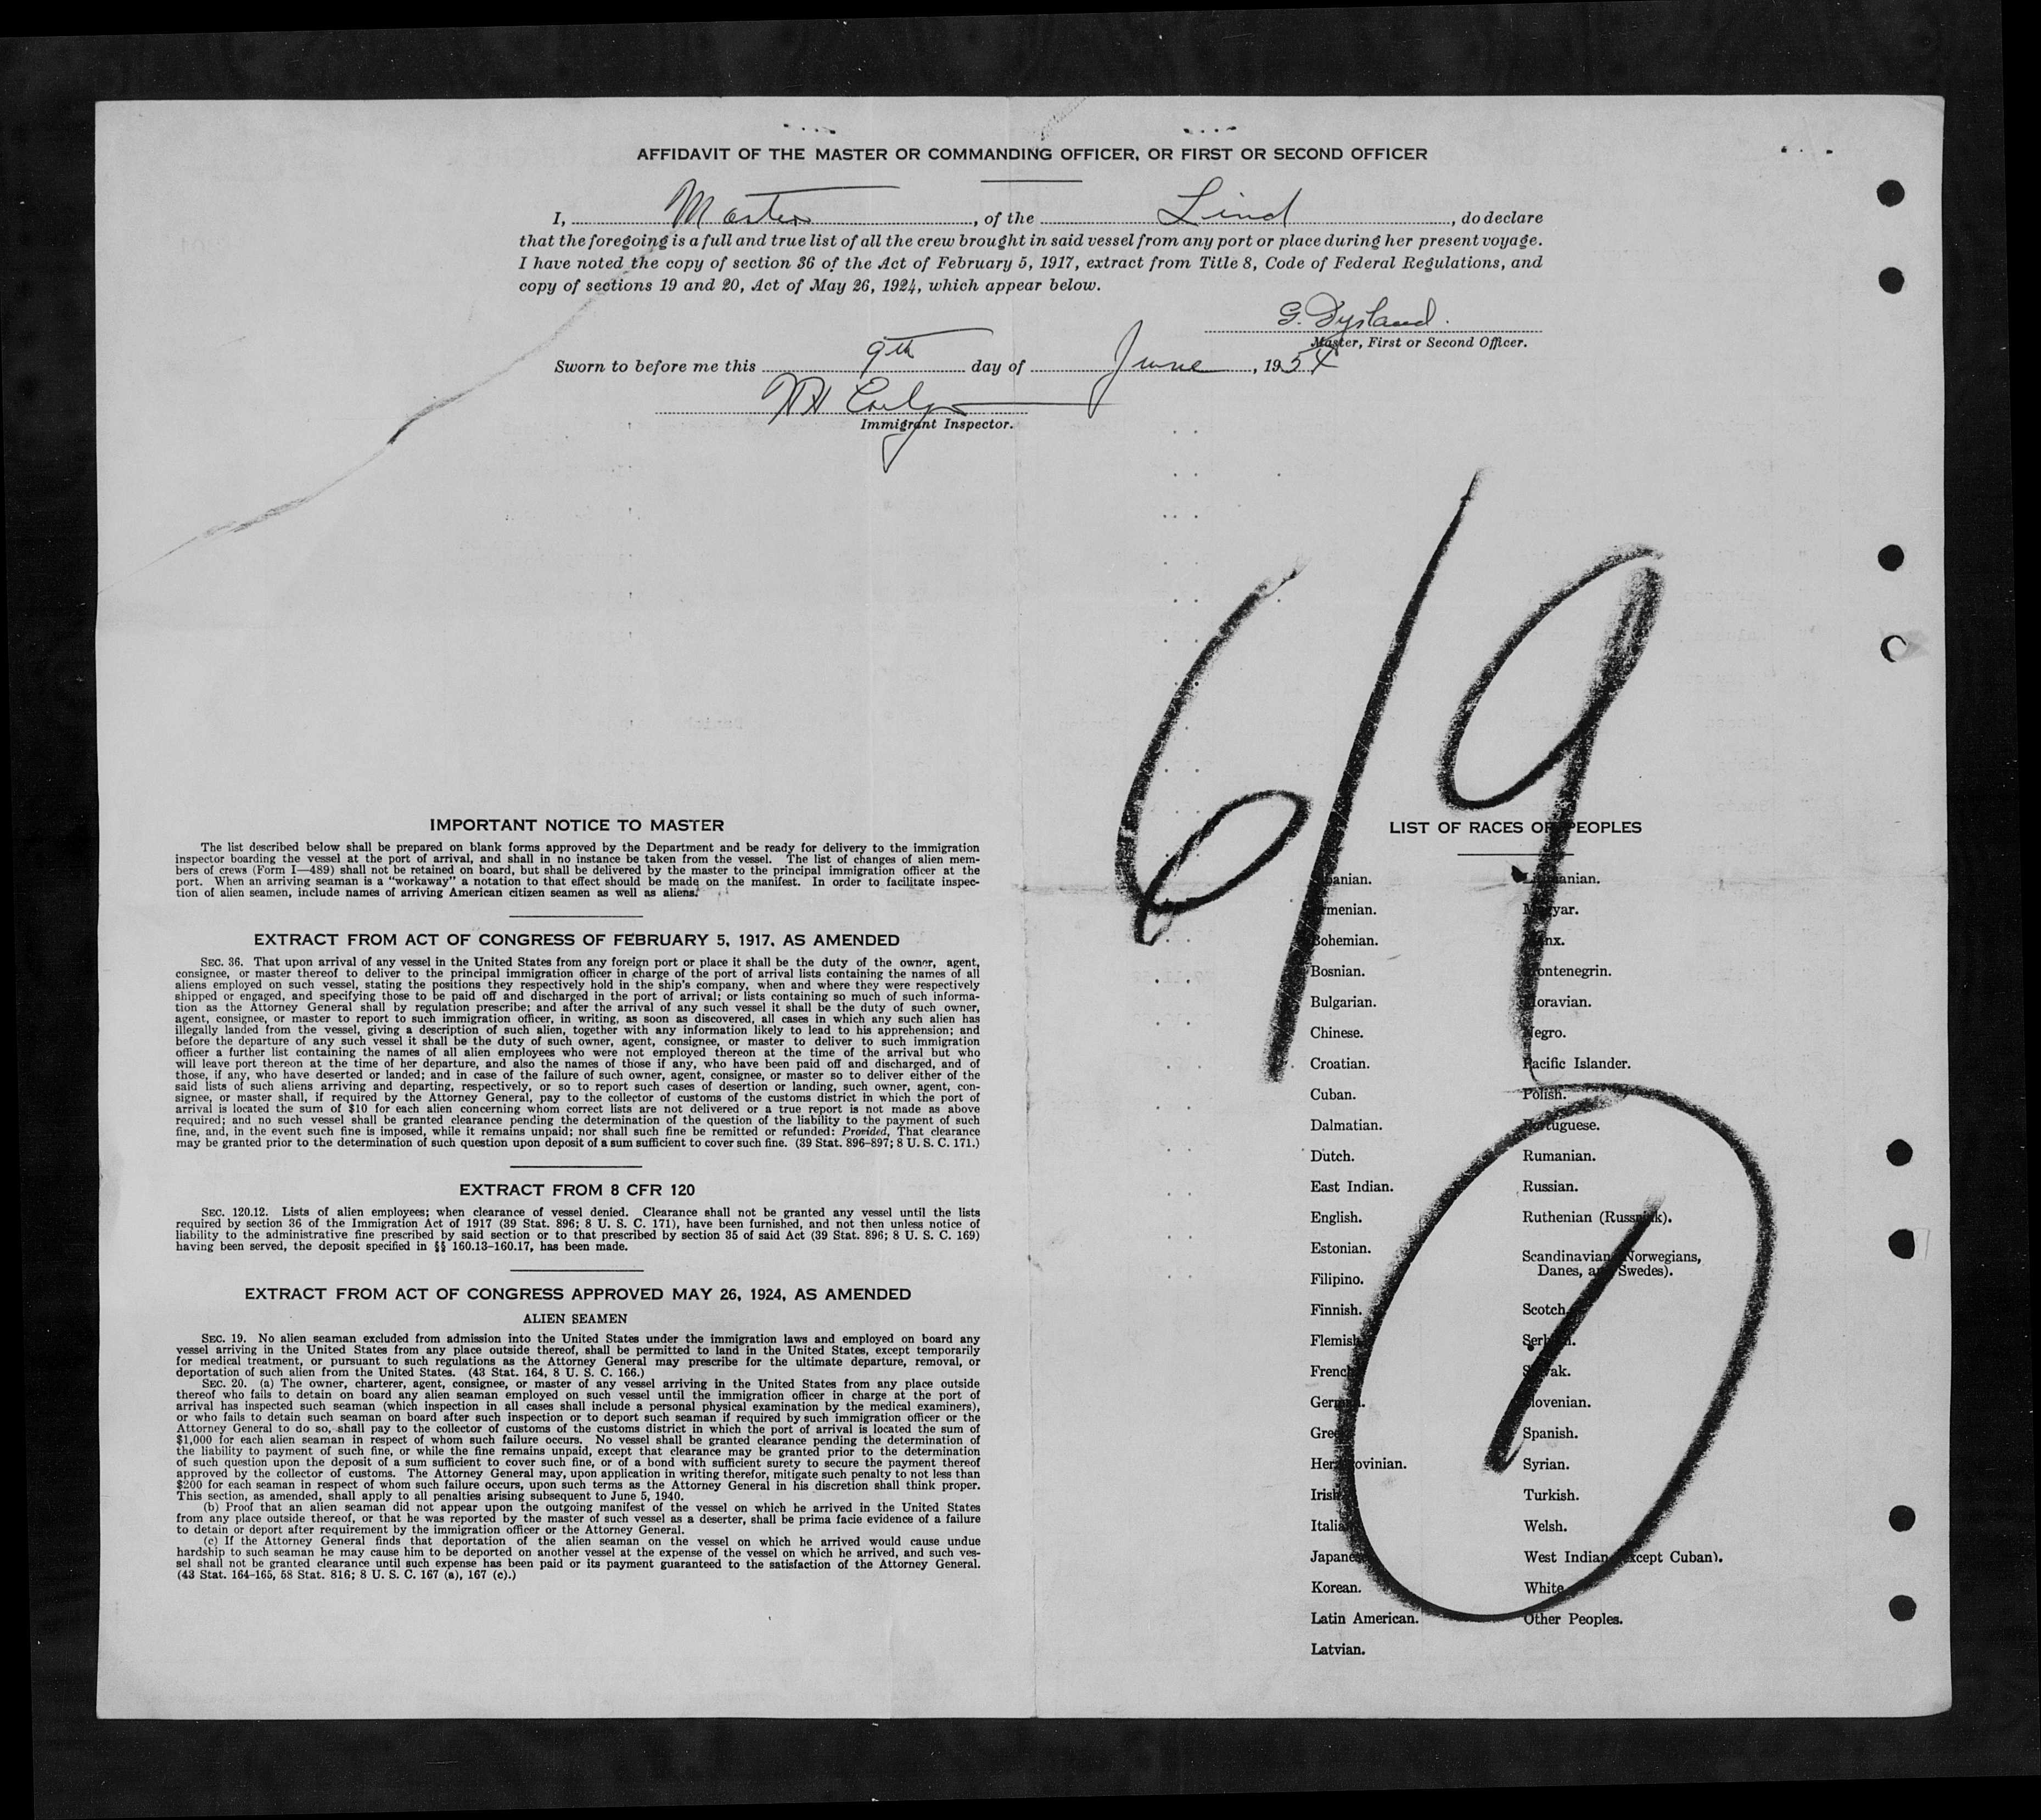 AFFIDAVIT OF THE MASTER OR COMMANDING OFFICER, OR FIRST OR SECOND OFFICER
I, Master, of the Lind, do declare
that the foregoing is a full and true list of all the crew brought in said vessel from any port or place during her present voyage.
I have noted the copy of section 36 of the Act of February 5, 1917, extract from Title 8, Code of Federal Regulations, and
copy of sections 19 and 20, Act of May 26, 1924, which appear below.
G. Dysland.
Master, First or Second Officer.
Sworn to before me this 9th day of June, 1954
Immigrant Inspector.
6/9
1
IMPORTANT NOTICE TO MASTER
The list described below shall be prepared on blank forms approved by the Department and be ready for delivery to the immigration
inspector boarding the vessel at the port of arrival, and shall in no instance be taken from the vessel. The list of changes of alien mem-
bers of crews (Form I—489) shall not be retained on board, but shall be delivered by the master to the principal immigration officer at the
port. When an arriving seaman is a "workaway" a notation to that effect should be made on the manifest. In order to facilitate inspec-
tion of alien seamen, include names of arriving American citizen seamen as well as aliens.
EXTRACT FROM ACT OF CONGRESS OF FEBRUARY 5, 1917, AS AMENDED
SEC. 36. That upon arrival of any vessel in the United States from any foreign port or place it shall be the duty of the owner, agent,
consignee, or master thereof to deliver to the principal immigration officer in charge of the port of arrival lists containing the names of all
aliens employed on such vessel, stating the positions they respectively hold in the ship's company, when and where they were respectively
shipped or engaged, and specifying those to be paid off and discharged in the port of arrival; or lists containing so much of such informa-
tion as the Attorney General shall by regulation prescribe; and after the arrival of any such vessel it shall be the duty of such owner,
agent, consignee, or master to report to such immigration officer, in writing, as soon as discovered, all cases in which any such alien has
illegally landed from the vessel, giving a description of such alien, together with any information likely to lead to his apprehension; and
before the departure of any such vessel it shall be the duty of such owner, agent, consignee, or master to deliver to such immigration
officer a further list containing the names of all alien employees who were not employed thereon at the time of the arrival but who
will leave port thereon at the time of her departure, and also the names of those if any, who have been paid off and discharged, and of
those, if any, who have deserted or landed; and in case of the failure of such owner, agent, consignee, or master so to deliver either of the
said lists of such aliens arriving and departing, respectively, or so to report such cases of desertion or landing, such owner, agent, con-
signee, or master shall, if required by the Attorney General, pay to the collector of customs of the customs district in which the port of
arrival is located the sum of $10 for each alien concerning whom correct lists are not delivered or a true report is not made as above
required; and no such vessel shall be granted clearance pending the determination of the question of the liability to the payment of such
fine, and, in the event such fine is imposed, while it remains unpaid; nor shall such fine be remitted or refunded: Provided, That clearance
may be granted prior to the determination of such question upon deposit of a sum sufficient to cover such fine. (39 Stat. 896–897; 8 U. S. C. 171.)
EXTRACT FROM 8 CFR 120
SEC. 120.12. Lists of alien employees; when clearance of vessel denied. Clearance shall not be granted any vessel until the lists
required by section 36 of the Immigration Act of 1917 (39 Stat. 896; 8 U. S. C. 171), have been furnished, and not then unless notice of
liability to the administrative fine prescribed by said section or to that prescribed by section 35 of said Act (39 Stat. 896; 8 U. S. C. 169)
having been served, the deposit specified in §§ 160.13–160.17, has been made.
EXTRACT FROM ACT OF CONGRESS APPROVED MAY 26, 1924, AS AMENDED
ALIEN SEAMEN
SEC. 19. No alien seaman excluded from admission into the United States under the immigration laws and employed on board any
vessel arriving in the United States from any place outside thereof, shall be permitted to land in the United States, except temporarily
for medical treatment, or pursuant to such regulations as the Attorney General may prescribe for the ultimate departure, removal, or
deportation of such alien from the United States. (43 Stat. 164, 8 U. S. C. 166.)
SEC. 20. (a) The owner, charterer, agent, consignee, or master of any vessel arriving in the United States from any place outside
thereof who fails to detain on board any alien seaman employed on such vessel until the immigration officer in charge at the port of
arrival has inspected such seaman (which inspection in all cases shall include a personal physical examination by the medical examiners),
or who fails to detain such seaman on board after such inspection or to deport such seaman if required by such immigration officer or the
Attorney General to do so, shall pay to the collector of customs of the customs district in which the port of arrival is located the sum of
$1,000 for each alien seaman in respect of whom such failure occurs. No vessel shall be granted clearance pending the determination of
the liability to payment of such fine, or while the fine remains unpaid, except that clearance may be granted prior to the determination
of such question upon the deposit of a sum sufficient to cover such fine, or of a bond with sufficient surety to secure the payment thereof
approved by the collector of customs. The Attorney General may, upon application in writing therefor, mitigate such penalty to not less than
$200 for each seaman in respect of whom such failure occurs, upon such terms as the Attorney General in his discretion shall think proper.
This section, as amended, shall apply to all penalties arising subsequent to June 5, 1940.
(b) Proof that an alien seaman did not appear upon the outgoing manifest of the vessel on which he arrived in the United States
from any place outside thereof, or that he was reported by the master of such vessel as a deserter, shall be prima facie evidence of a failure
to detain or deport after requirement by the immigration officer or the Attorney General.
(c) If the Attorney General finds that deportation of the alien seaman on the vessel on which he arrived would cause undue
hardship to such seaman he may cause him to be deported on another vessel at the expense of the vessel on which he arrived, and such ves-
sel shall not be granted clearance until such expense has been paid or its payment guaranteed to the satisfaction of the Attorney General.
(43 Stat. 164–165, 58 Stat. 816; 8 U. S. C. 167 (a), 167 (c).)
LIST OF RACES OR PEOPLES
Albanian.
Armenian.
Bohemian.
Bosnian.
Bulgarian.
Chinese.
Croatian.
Cuban.
Dalmatian.
Dutch.
East Indian.
English.
Estonian.
Filipino.
Finnish.
Flemish.
French.
German.
Greek.
Herzegovinian.
Irish.
Italian.
Japanese.
Korean.
Latin American.
Latvian.
Lithuanian.
Magyar.
Manx.
Montenegrin.
Moravian.
Negro.
Pacific Islander.
Polish.
Portuguese.
Rumanian.
Russian.
Ruthenian (Russniak).
Scandinavian (Norwegians,
Danes, and Swedes).
Scotch.
Serbian.
Slovak.
Slovenian.
Spanish.
Syrian.
Turkish.
Welsh.
West Indian (except Cuban).
White.
Other Peoples.